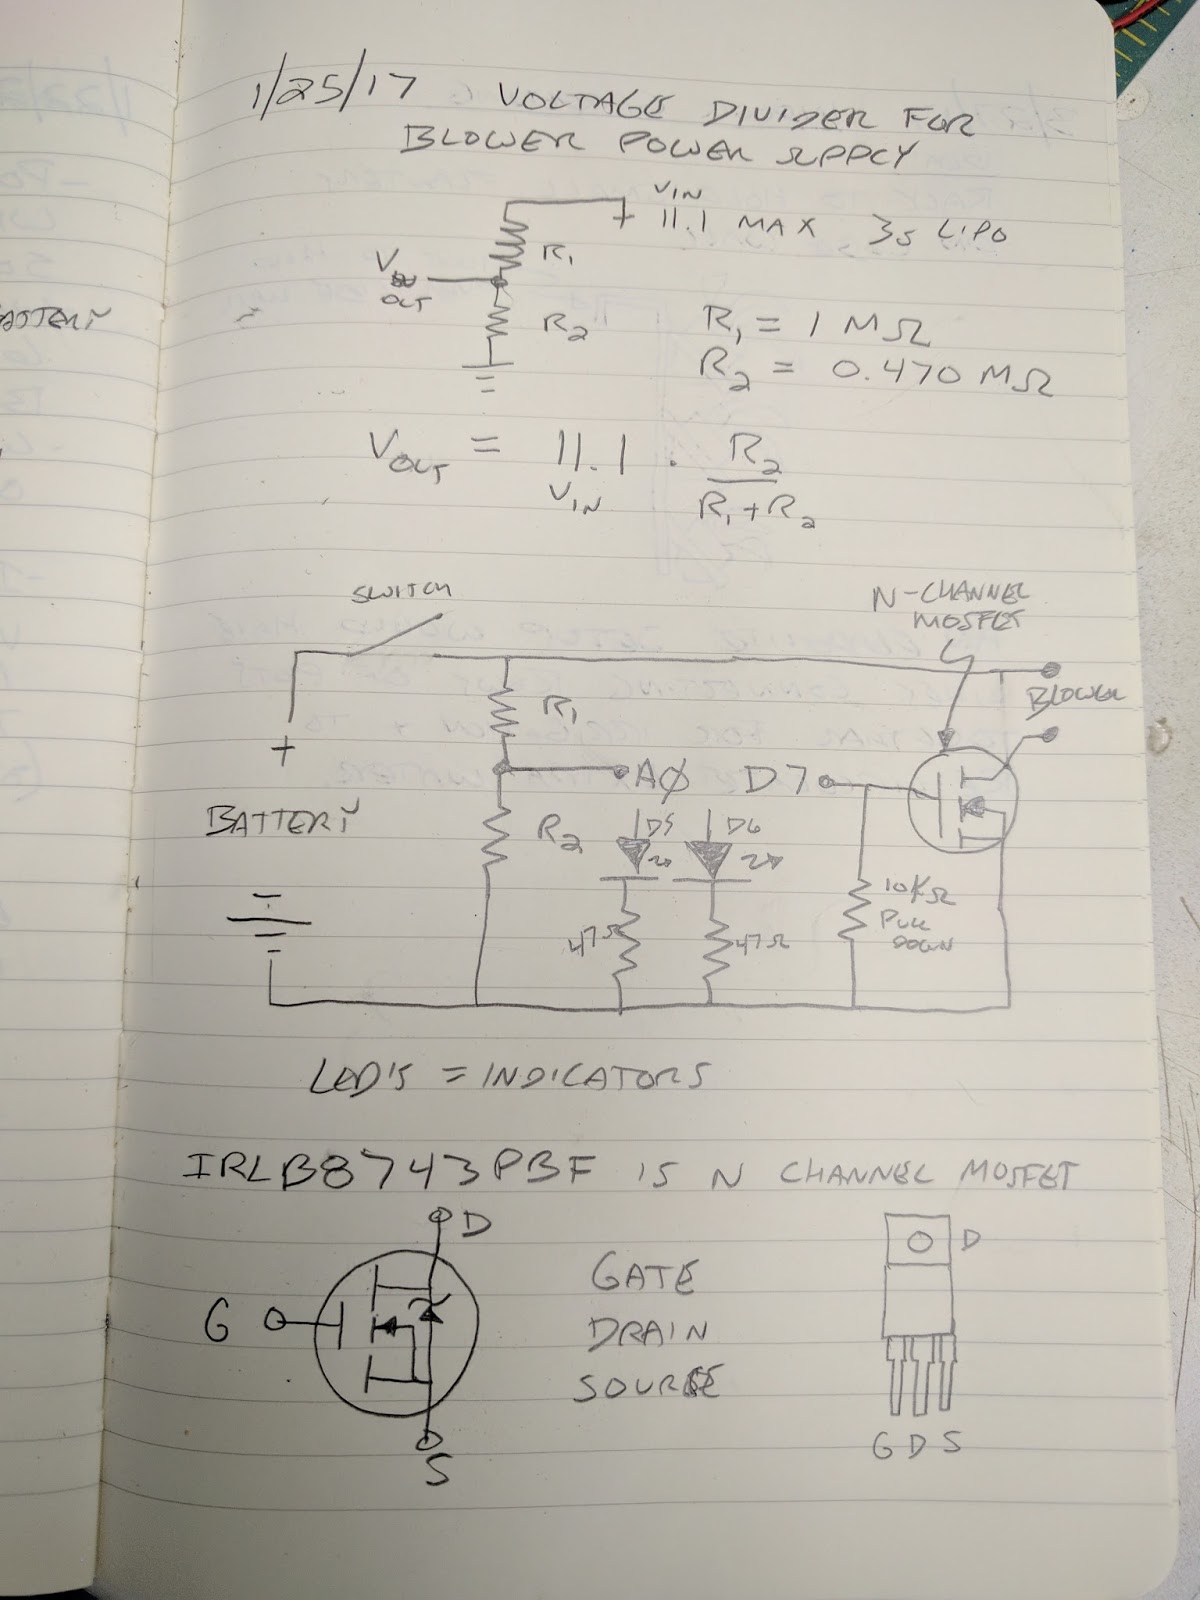 1/25/17 VOLTAGE DIVIDER FOR
BLOWER POWER SUPPLY
VIN
+ 11.1 MAX 3S LIPO
R1
V
OUT
R2
R1 = 1 MΩ
R2 = 0.470 MΩ
VOUT = 11.1 · R2
VIN R1 + R2
SWITCH
N-CHANNEL
MOSFET
BLOWER
R1
+
A0 D7
BATTERY
R2 D5 D6
10KΩ
PULL
DOWN
47Ω 47Ω
LED'S = INDICATORS
IRLB8743PBF IS N CHANNEL MOSFET
D
D
GATE
G
DRAIN
SOURCE
G D S
S
ATTERY